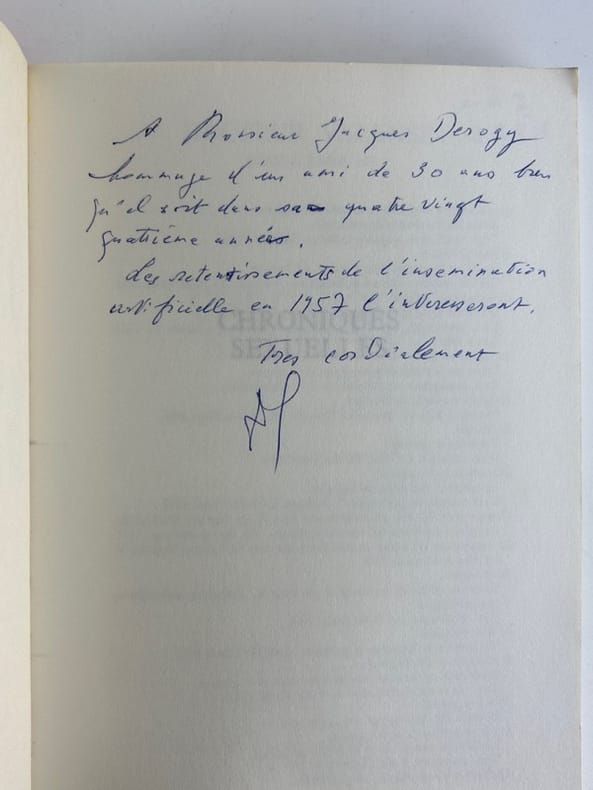 A Monsieur Jacques Derogy
hommage d'un ami de 30 ans bien
qu'il soit dans sa quatre vingt
quatrième année.
Les retentissements de l'insemination
artificielle en 1957 l'interesseront.
CHRONIQUES
SEXUELLES
Tres cordialement